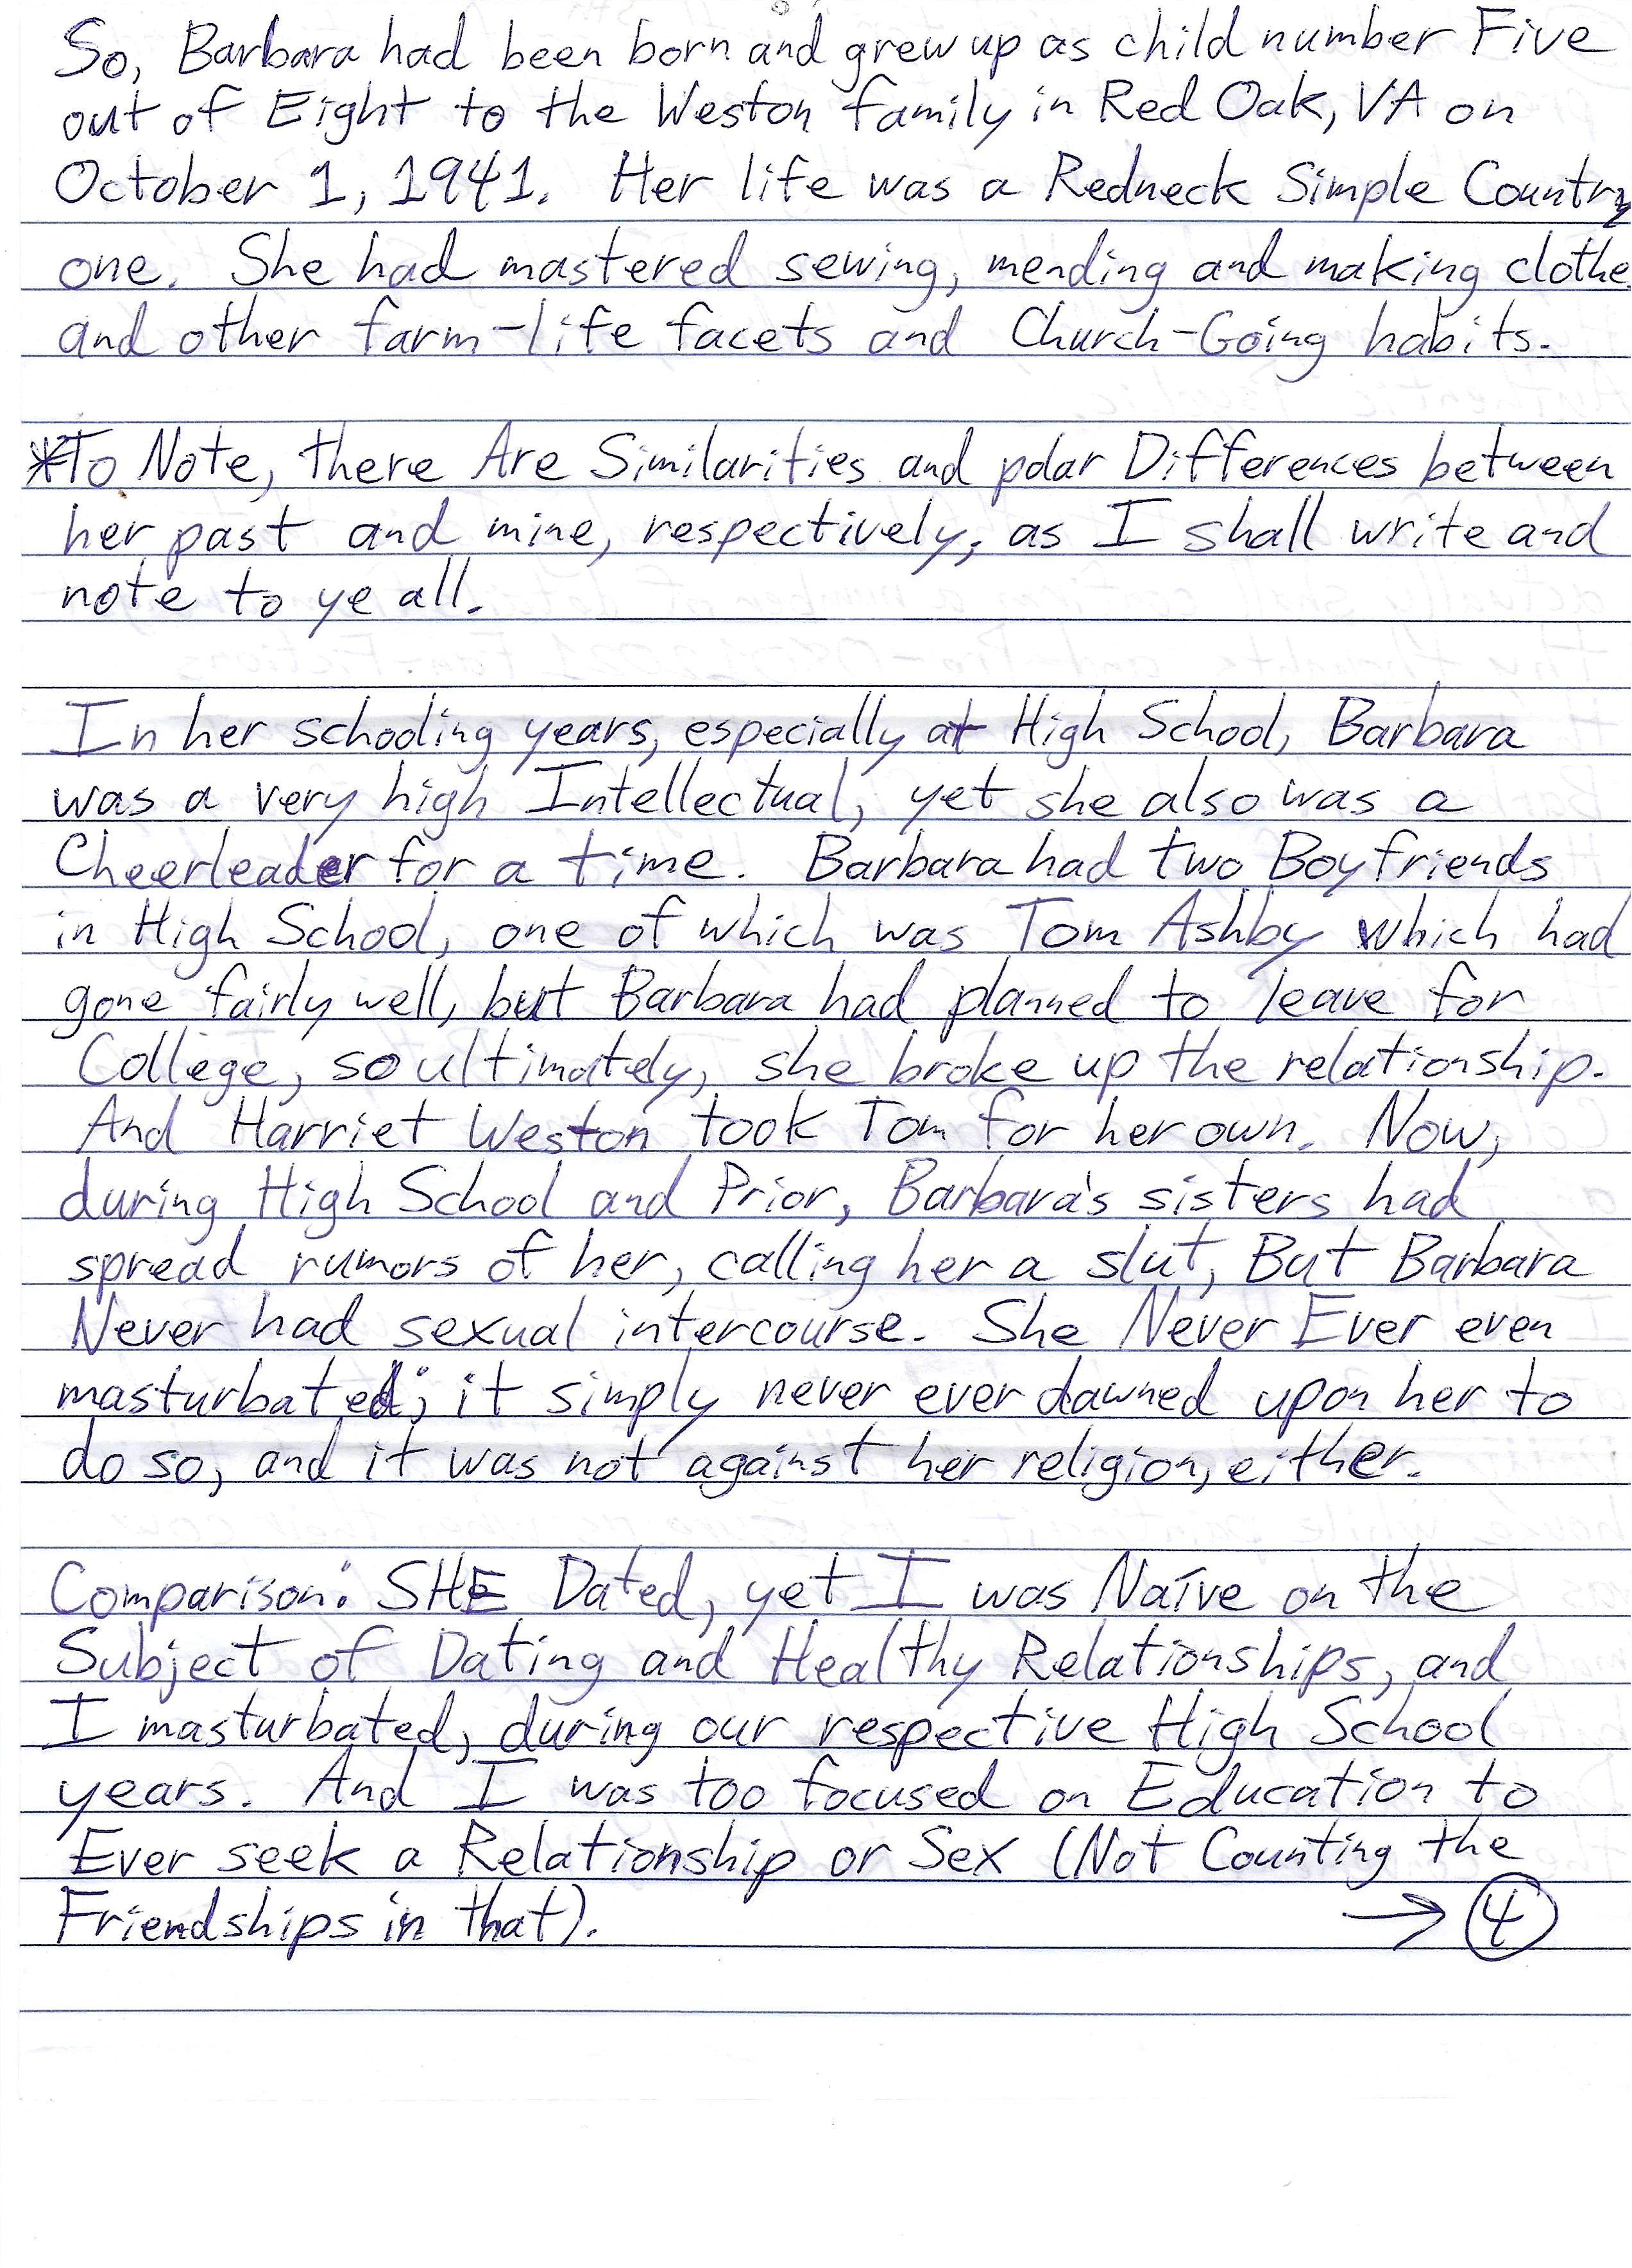 So, Barbara had been born and grew up as child number Five
out of Eight to the Weston family in Red Oak, VA on
October 1, 1941. Her life was a Redneck Simple Country
one. She had mastered sewing, mending and making clothe
and other farm-life facets and Church-Going habits.
*To Note, there Are Similarities and polar Differences between
her past and mine, respectively, as I shall write and
note to ye all.
In her schooling years, especially at High School, Barbara
was a very high Intellectual, yet she also was a
Cheerleader for a time. Barbara had two Boyfriends
in High School, one of which was Tom Ashby which had
gone fairly well, but Barbara had planned to leave for
College, so ultimately, she broke up the relationship.
And Harriet Weston took Tom for her own. Now,
during High School and Prior, Barbara's sisters had
spread rumors of her, calling her a slut, But Barbara
Never had sexual intercourse. She Never Ever even
masturbated; it simply never ever dawned upon her to
do so, and it was not against her religion, either.
Comparison: SHE Dated, yet I was Naïve on the
Subject of Dating and Healthy Relationships, and
I masturbated, during our respective High School
years. And I was too focused on Education to
Ever seek a Relationship or Sex (Not Counting the
Friendships in that). → 4